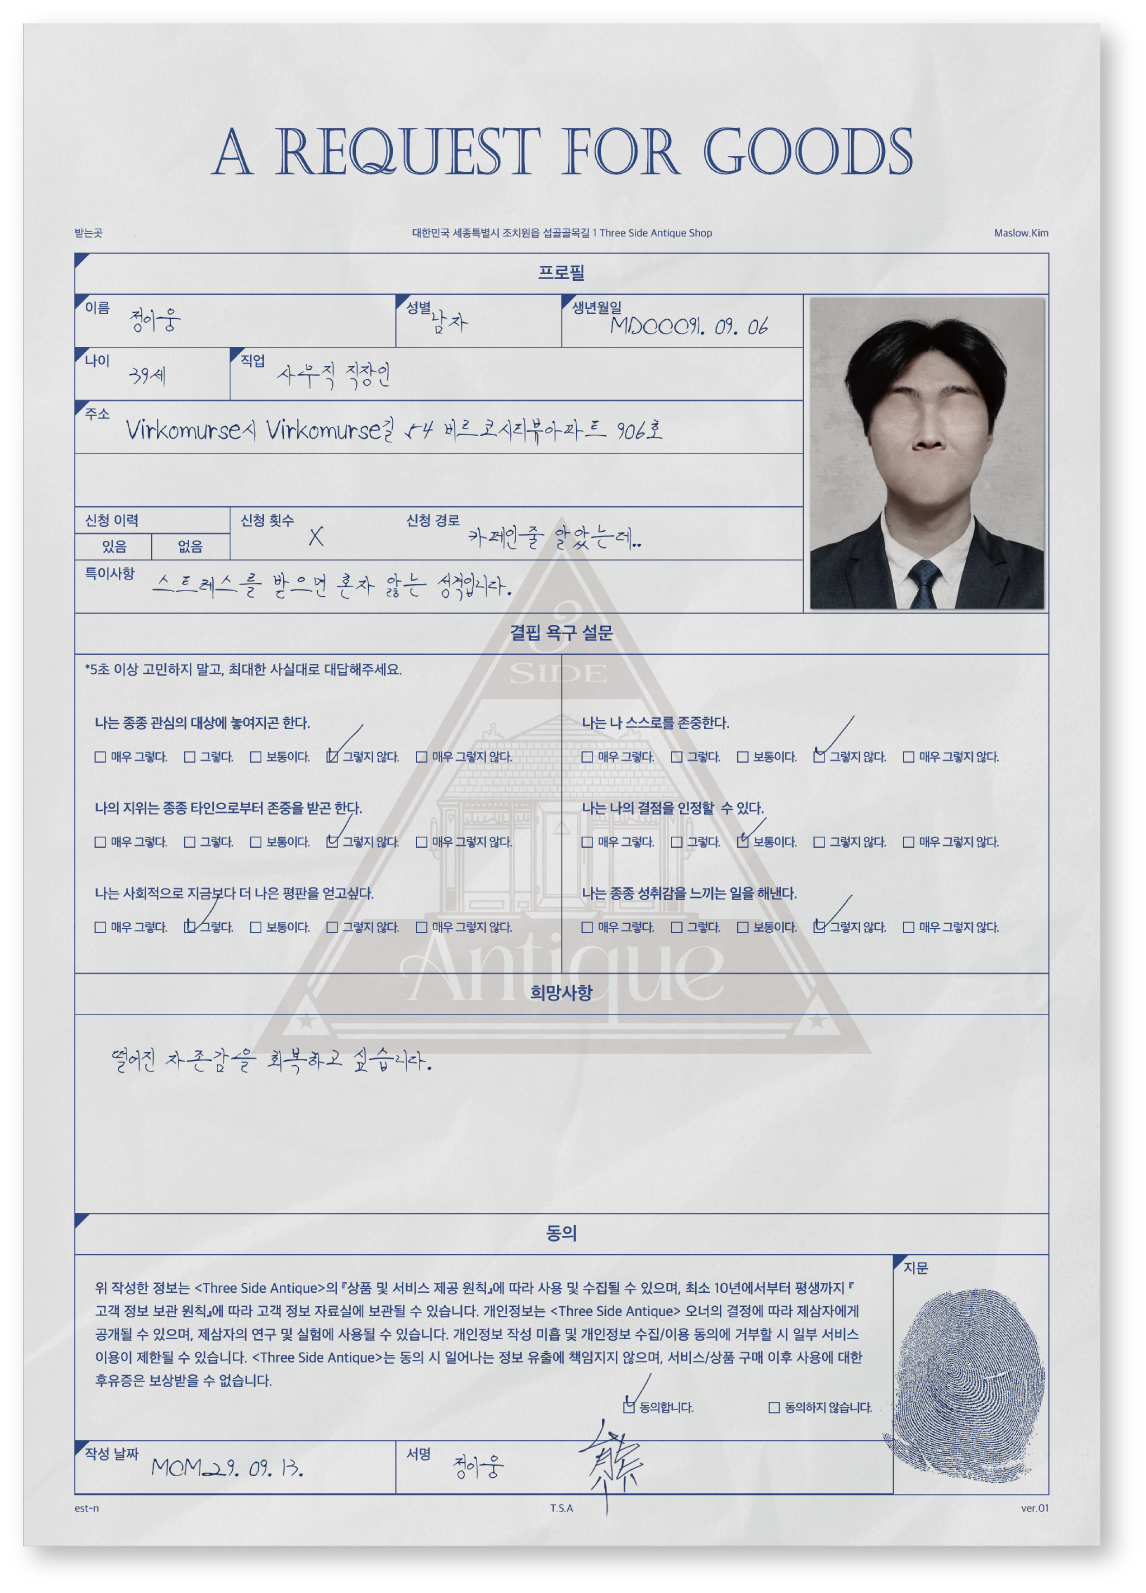 A REQUEST FOR GOODS
받는곳 대한민국 세종특별시 조치원읍 섭골골목길 1 Three Side Antique Shop Maslow.Kim
프로필
이름 정이웅 성별 남자 생년월일 MDCCC91. 09. 06
나이 39세 직업 사무직 직장인
주소 Virkomurse시 Virkomurse길 54 비르코시티뷰아파트 906호
신청 이력 신청 횟수 X 신청 경로 카페인줄 알았는데..
있음 없음
특이사항 스트레스를 받으면 혼자 앓는 성격입니다.
결핍 욕구 설문
*5초 이상 고민하지 말고, 최대한 사실대로 대답해주세요.
나는 종종 관심의 대상에 놓여지곤 한다. 나는 나 스스로를 존중한다.
매우 그렇다. 그렇다. 보통이다. 그렇지 않다. 매우 그렇지 않다. 매우 그렇다. 그렇다. 보통이다. 그렇지 않다. 매우 그렇지 않다.
나의 지위는 종종 타인으로부터 존중을 받곤 한다. 나는 나의 결점을 인정할 수 있다.
매우 그렇다. 그렇다. 보통이다. 그렇지 않다. 매우 그렇지 않다. 매우 그렇다. 그렇다. 보통이다. 그렇지 않다. 매우 그렇지 않다.
나는 사회적으로 지금보다 더 나은 평판을 얻고싶다. 나는 종종 성취감을 느끼는 일을 해낸다.
매우 그렇다. 그렇다. 보통이다. 그렇지 않다. 매우 그렇지 않다. 매우 그렇다. 그렇다. 보통이다. 그렇지 않다. 매우 그렇지 않다.
3
SIDE
Antique
희망사항
떨어진 자존감을 회복하고 싶습니다.
동의
위 작성한 정보는 <Three Side Antique>의 『상품 및 서비스 제공 원칙』에 따라 사용 및 수집될 수 있으며, 최소 10년에서부터 평생까지 『
고객 정보 보관 원칙』에 따라 고객 정보 자료실에 보관될 수 있습니다. 개인정보는 <Three Side Antique> 오너의 결정에 따라 제삼자에게
공개될 수 있으며, 제삼자의 연구 및 실험에 사용될 수 있습니다. 개인정보 작성 미흡 및 개인정보 수집/이용 동의에 거부할 시 일부 서비스
이용이 제한될 수 있습니다. <Three Side Antique>는 동의 시 일어나는 정보 유출에 책임지지 않으며, 서비스/상품 구매 이후 사용에 대한
후유증은 보상받을 수 없습니다.
동의합니다. 동의하지 않습니다.
지문
작성 날짜 MCM29. 09. 13. 서명 정이웅 熊
est-n T.S.A ver.01